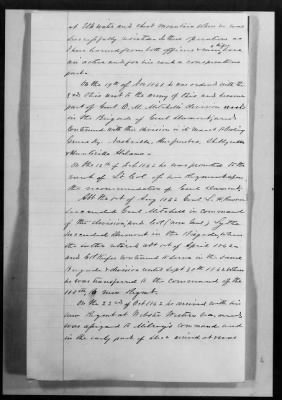 at Elk water and Cheat Mountain when he was
successfully assisted in their operations as
I have learned from both officers & men, he bore
an active and for his rank a conspicuous
part.
On the 19th of Nov 1861 he was ordered with the
3rd Ohio next to the army of Ohio and became
part of Genl O. M. Mitchell's division and
in the Brigade of Genl Dumont, and
Continued with this division in its march to Bowling
Green Ky. Nashville Murfreesboro, Shelbyville
& Huntsville Alabama.
On the 12th of Feb 1862 he was promoted to the
rank of Lt Col of his Regiment upon
the recommendation of Genl Dumont.
Abt the 1st of Aug 1862 Genl L. H. Rousseau
succeeded Genl Mitchell in command
of the division, and Col (now Genl) Lytle
succeeded Dumont in the Brigade, when
the latter retired abt 1st of April 1862
and Col Keifer continued to serve in the same
Brigade & division until Sept 30th 1862 when
he was transferred to the command of the
110th Regmt.
On the 22nd of Oct 1862 he arrived with his
own Regmt at Weston Western Va. and
was assigned to Milroy's command and
in the early part of